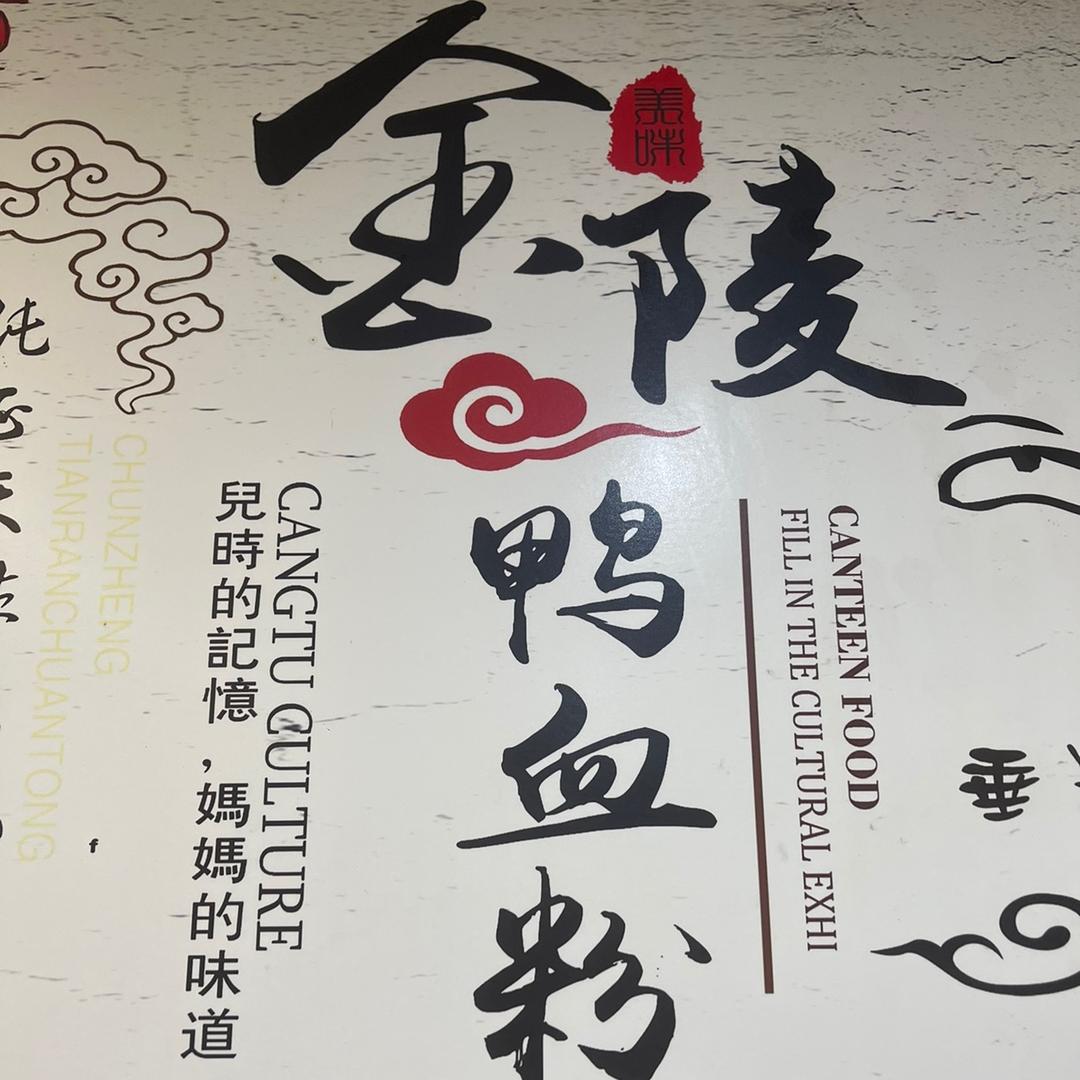 金陵
美味
鸭血粉
CANTEEN FOOD
FILL IN THE CULTURAL EXHI
CANGTU CULTURE
兒時的記憶,媽媽的味道
CHUNZHENG
TIANRANCHUANTONG
垂
f